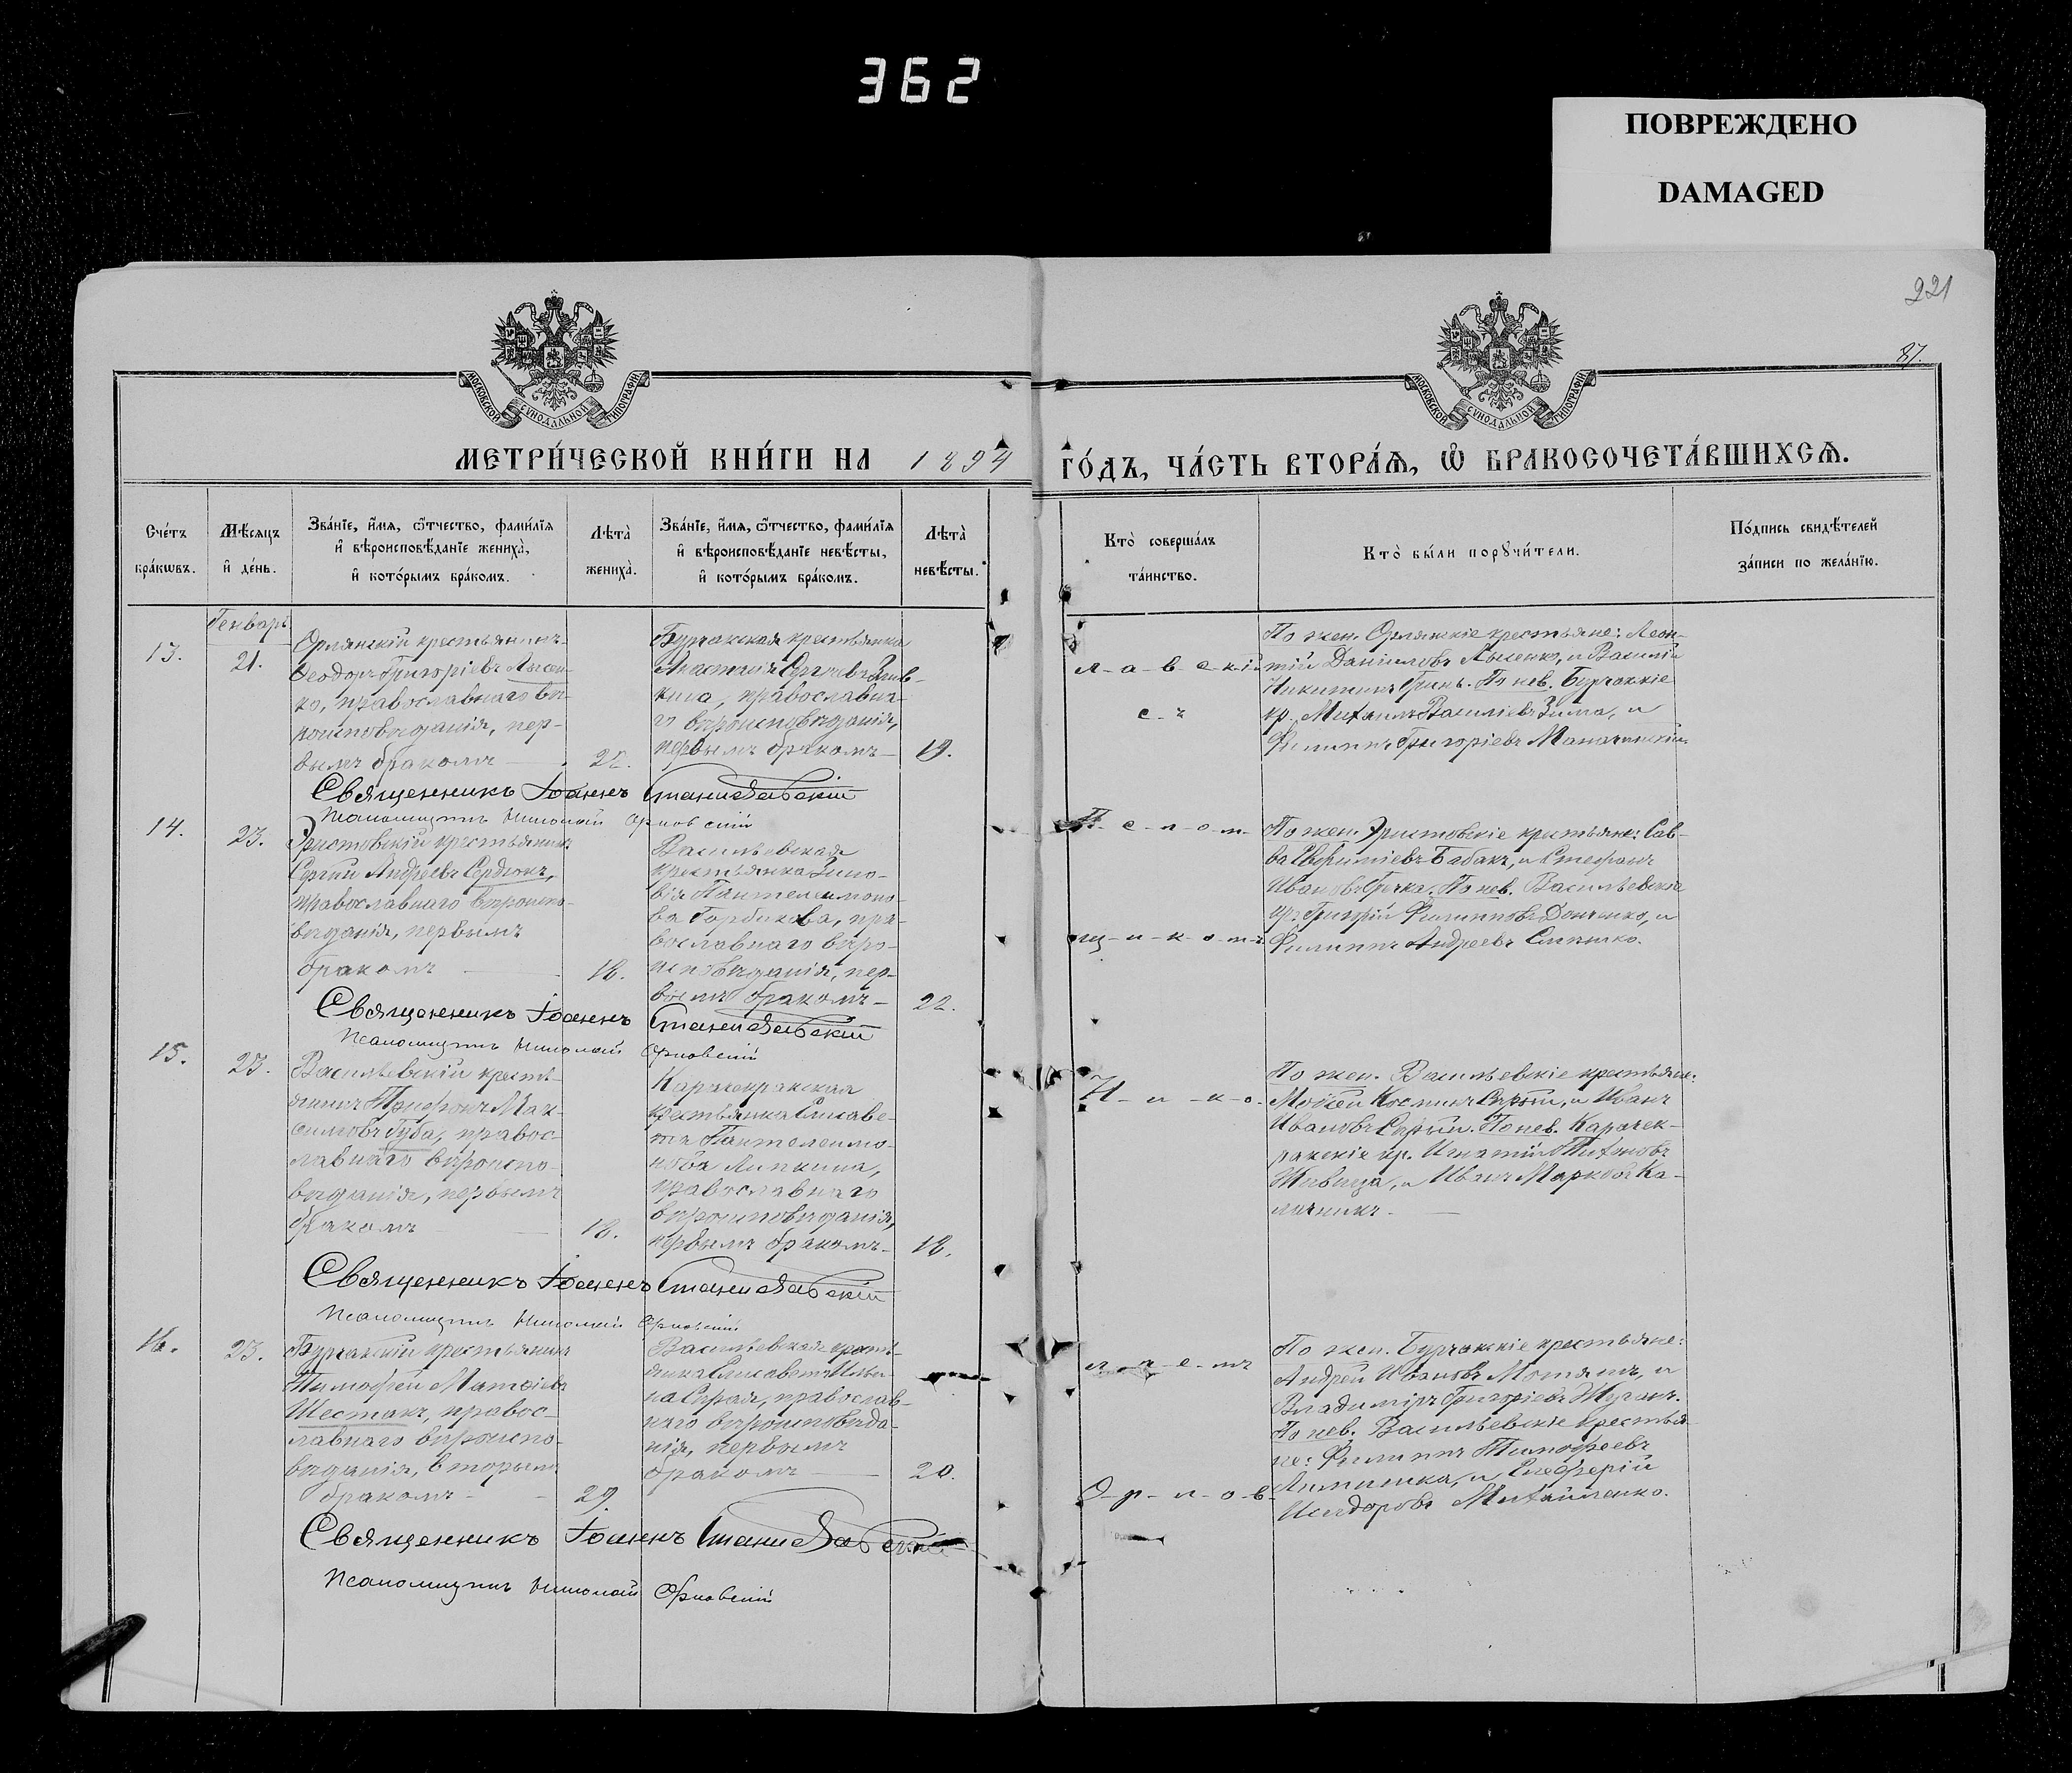 362
ПОВРЕЖДЕНО
DAMAGED
221
87.
МОСКОВСКОЙ СУНОДАЛЬНОЙ ТИПОГРАФІИ
МОСКОВСКОЙ СУНОДАЛЬНОЙ ТИПОГРАФІИ
МЕТРИ́ЧЕСКОЙ КНИ́ГИ НА 1894
ГО́ДЪ, ЧА́СТЬ ВТОРА́Ѧ, Ѽ БРАКОСОЧЕТА́ВШИХСѦ.
Сче́тъ
бра́кѡвъ.
Мѣ́сяцъ
и҆ де́нь.
Зва́нїе, и҆́мѧ, ѻ҆́тчество, фами́лїѧ
и҆ вѣроисповѣ́данїе жениха̀,
и҆ кото́рымъ бра́комъ.
Лѣта̀
жениха̀.
Зва́нїе, и҆́мѧ, ѻ҆́тчество, фами́лїѧ
и҆ вѣроисповѣ́данїе невѣ́сты,
и҆ кото́рымъ бра́комъ.
Лѣта̀
невѣ́сты.
Кто̀ соверша́лъ
та́инство.
Кто̀ бы́ли порꙋчи́тели.
По́дпись свидѣ́телей
за́писи по жела́нїю.
Генварь
13.
21.
Орлянскій крестьянинъ
Ѳеодоръ Григоріевъ Лысен-
ко, православнаго вѣ-
роисповѣданія, пер-
вымъ бракомъ
22.
Бурчакская крестьянка
Анастасія Сергѣева
православна-
го вѣроисповѣданія,
первымъ бракомъ
19.
л-а-в-с-к-ій
с-ъ
По жен. Орлянскіе крестьяне: Леон-
тій Даніиловъ Лысенко, и Василій
Никитинъ Гринь. По нев. Бурчакскіе
кр. Михаилъ Василіевъ Зима, и
Филиппъ Григоріевъ
Священникъ Іоаннъ Станиславскій
Псаломщикъ Николай Орловскій
14.
23.
Эристовскій крестьянинъ
Сергій Андреевъ Сердюкъ,
православнаго вѣроиспо-
вѣданія, первымъ
бракомъ
18.
Васильевская
крестьянка Зино-
вія Пантелеимоно-
ва Горбикова, пра-
вославнаго вѣро-
исповѣданія, пер-
вымъ бракомъ
22.
П-с-а-л-о-м-
щ-и-к-о-м-ъ
По жен. Эристовскіе крестьяне: Сав-
ва Евфиміевъ Бабакъ, и Стефанъ
Ивановъ Гречка. По нев. Васильевскіе
кр. Григорій Филипповъ Донченко, и
Филиппъ Андреевъ
Священникъ Іоаннъ Станиславскій
Псаломщикъ Николай Орловскій
15.
23.
Васильевскій кресть-
янинъ Трифонъ Мак-
симовъ Губа, правос-
лавнаго вѣроиспо-
вѣданія, первымъ
бракомъ
18.
Карачекракская
крестьянка Елисаве-
та Пантелеимо-
нова Липкина,
православнаго
вѣроисповѣданія,
первымъ бракомъ
18.
Н-и-к-о-
По жен. Васильевскіе крестьяне:
Моисей Косминъ Сѣрый, и Иванъ
Ивановъ Сѣрый. По нев. Карачек-
ракскіе кр. Игнатій Тихоновъ
Живица, и Иванъ Марковъ Ка-
лачникъ.
Священникъ Іоаннъ Станиславскій
Псаломщикъ Николай Орловскій
16.
23.
Бурчакскій крестьянинъ
Тимофей Матѳіевъ
Шестакъ, правос-
лавнаго вѣроиспо-
вѣданія, вторымъ
бракомъ
29.
Васильевская кресть-
янка Елисавета Ильи-
на Сѣрая, православ-
наго вѣроисповѣда-
нія, первымъ
бракомъ
20.
л-а-е-мъ
О-р-л-о-в-
По жен. Бурчакскіе крестьяне:
Андрей Ивановъ и
Владиміръ Григоріевъ Жуганъ.
По нев. Васильевскіе крестья-
не: Филиппъ Тимофеевъ
и Елеѳерій
Исидоровъ Михайленко.
Священникъ Іоаннъ Станиславскій
Псаломщикъ Николай Орловскій